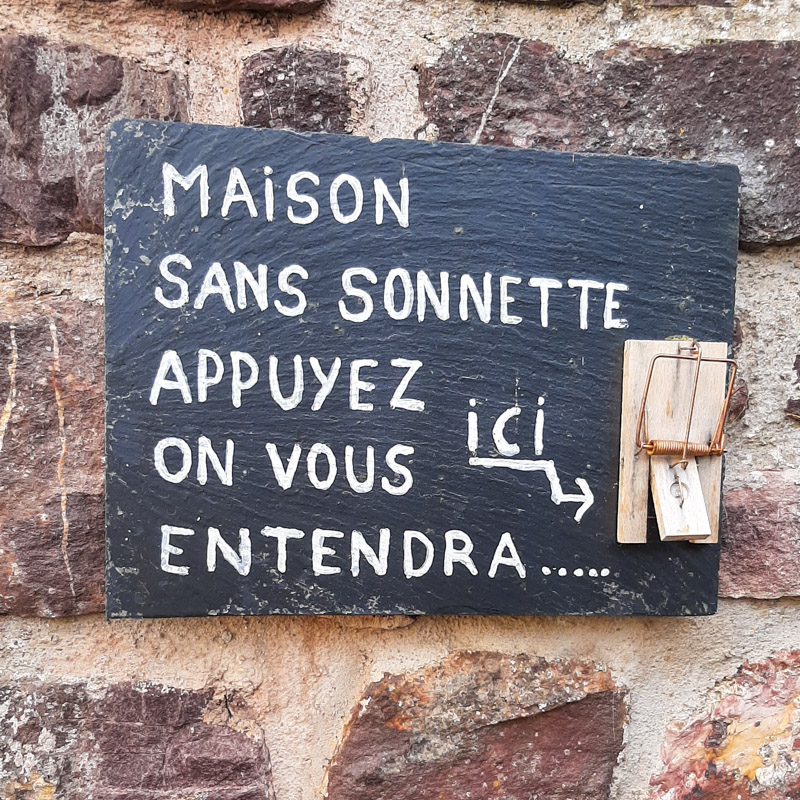 MAiSON
SANS SONNETTE
APPUYEZ
ici
ON VOUS
ENTENDRA.....